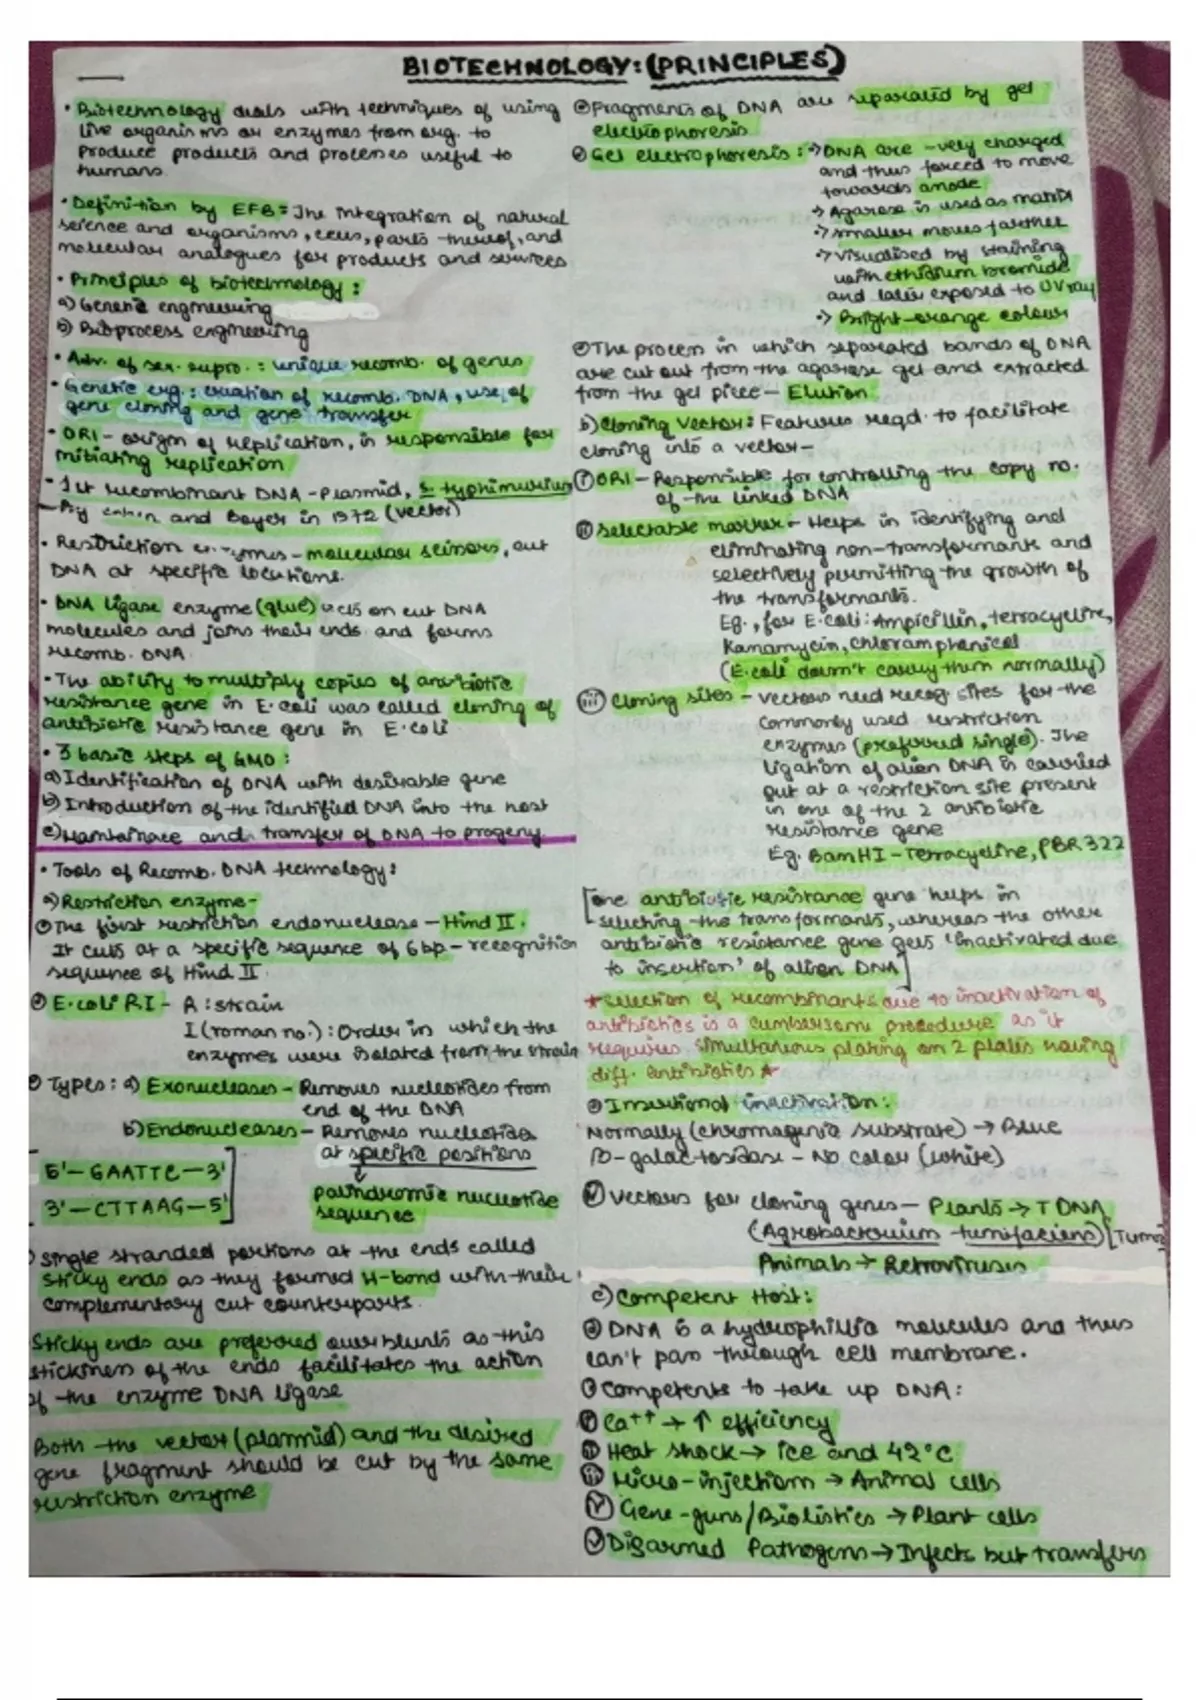 BIOTECHNOLOGY: (PRINCIPLES)
• Biotechnology deals with techniques of using
live organisms or enzymes from org. to
Produce products and processes useful to
humans.
• Definition by EFB = The integration of natural
science and organisms, cells, parts thereof, and
molecular analogues for products and services
• Principles of biotechnology:
a) Genetic engineering
b) Bioprocess engineering
• Adv. of sex. repro.: unique recomb. of genes
• Genetic eng.: creation of recomb. DNA, use of
gene cloning and gene transfer
• ORI - origin of replication, is responsible for
initiating replication
• 1st recombinant DNA - Plasmid, S. typhimurium
- By and Boyer in 1972 (vector)
• Restriction enzymes - molecular scissors, cut
DNA at specific locations.
• DNA ligase enzyme (glue) acts on cut DNA
molecules and joins their ends and forms
recomb. DNA
• The ability to multiply copies of antibiotic
resistance gene in E. coli was called cloning of
antibiotic resistance gene in E. coli
• 3 basic steps of GMO:
a) Identification of DNA with desirable gene
b) Introduction of the identified DNA into the host
c) Maintainace and transfer of DNA to progeny
• Tools of Recomb. DNA technology:
a) Restriction enzyme-
The first restriction endonuclease - Hind II.
It cuts at a specific sequence of 6 bp - recognition
sequence of Hind II.
E. coli R.I - A: strain
I (roman no.): Order in which the
enzymes were isolated from the strain
Types: a) Exonucleases - Removes nucleotides from
end of the DNA
b) Endonucleases - Removes nucleotide
at specific positions
↓
palindromic nucleotide
sequence
5'- GAATTC - 3'
3'- CTTAAG - 5'
Single stranded portions at the ends called
sticky ends as they formed H-bond with their
complementary cut counterparts.
Sticky ends are preferred over blunts as this
stickiness of the ends facilitates the action
of the enzyme DNA ligase
Both the vector (plasmid) and the desired
gene fragment should be cut by the same
restriction enzyme
Fragments of DNA are separated by gel
electrophoresis
Gel electrophoresis: → DNA are -vely charged
and thus forced to move
towards anode
→ Agarose is used as matrix
→ smaller moves farther
→ visualised by staining
with ethidium bromide
and later exposed to UV ray
→ Bright-orange colour
The process in which separated bands of DNA
are cut out from the agarose gel and extracted
from the gel piece - Elution
b) Cloning Vector: Features reqd. to facilitate
cloning into a vector -
(i) ORI - Responsible for controlling the copy no.
of the linked DNA
(ii) Selectable marker - Helps in identifying and
eliminating non-transformants and
selectively permitting the growth of
the transformants.
Eg., for E. coli: Ampicillin, tetracycline,
Kanamycin, chloramphenicol
(E. coli doesn't carry them normally)
(iii) Cloning sites - vectors need recog sites for the
commonly used restriction
enzymes (preferred single). The
ligation of alien DNA is carried
out at a restriction site present
in one of the 2 antibiotic
resistance gene
Eg. BamHI - Tetracycline, PBR322
[one antibiotic resistance gene helps in
selecting the transformants, whereas the other
antibiotic resistance gene gets 'inactivated due
to insertion' of alien DNA]
★ selection of recombinants due to inactivation of
antibiotics is a cumbersome procedure as it
requires simultaneous plating on 2 plates having
diff. antibiotics ★
Insertional inactivation:
Normally (chromogenic substrate) → Blue
β-galactosidase - No colour (white)
Vectors for cloning genes - Plants → T DNA
(Agrobacterium tumifaciens) [
Animals → Retroviruses
c) Competent Host:
DNA is a hydrophillic molecules and thus
can't pass through cell membrane.
Competents to take up DNA:
Ca++ → ↑ efficiency
(ii) Heat shock → ice and 42°C
(iii) Micro-injections → Animal cells
Gene-guns/Biolistics → Plant cells
(v) Disarmed Pathogens → Infects but transfers